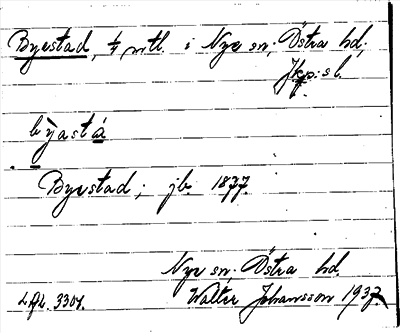 Byestad, 1/4 mtl. i Nye sn, Östra hd,
Jkp:s l.
bỳastá
Byestad; jb. 1877.
Nye sn. Östra hd.
Walter Johansson 1937.